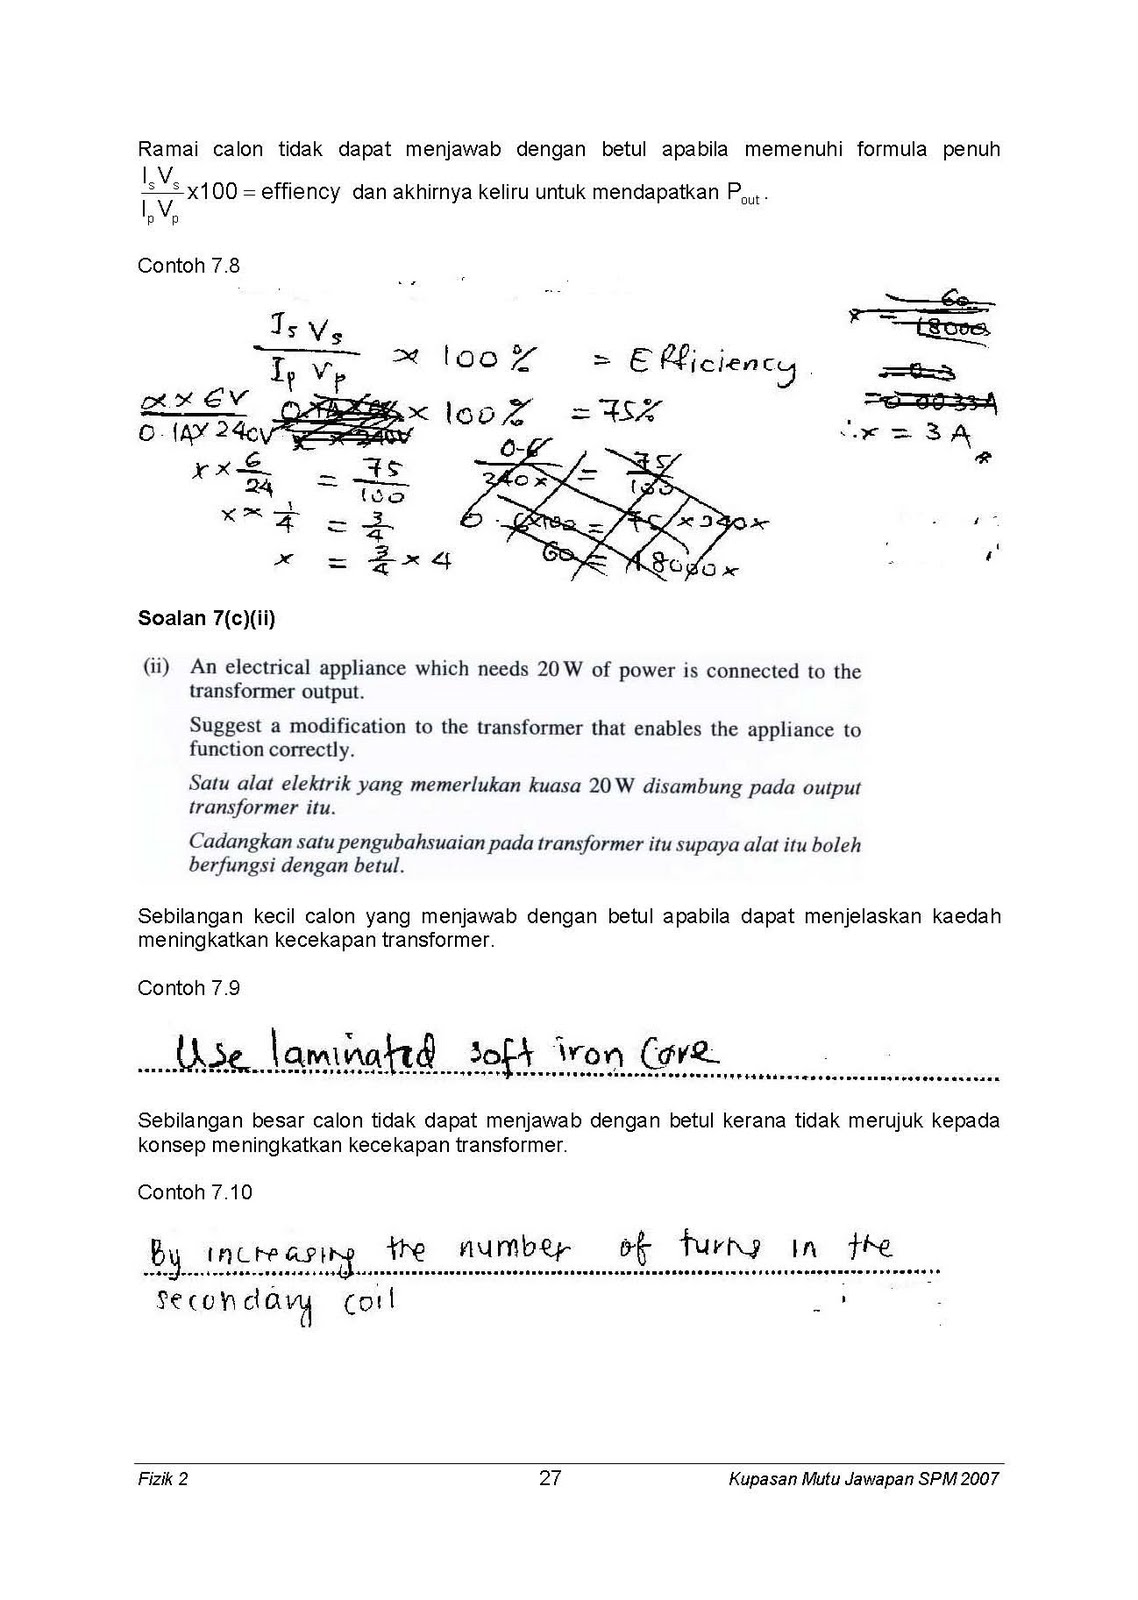 Ramai calon tidak dapat menjawab dengan betul apabila memenuhi formula penuh
IsVs
IpVp x100 = effiency dan akhirnya keliru untuk mendapatkan Pout.
Contoh 7.8
Is Vs
Ip Vp × 100 % = Efficiency.
x × 6V
0.1A × 240V × 100 % = 75%
x × 6/24 = 75/100
x × 1/4 = 3/4
x = 3/4 × 4
0.6/240x = 75/100
60 = 18000x
x = 60/18000
= 0.3
= 0.0033A
∴ x = 3 A
Soalan 7(c)(ii)
(ii) An electrical appliance which needs 20 W of power is connected to the
transformer output.
Suggest a modification to the transformer that enables the appliance to
function correctly.
Satu alat elektrik yang memerlukan kuasa 20 W disambung pada output
transformer itu.
Cadangkan satu pengubahsuaian pada transformer itu supaya alat itu boleh
berfungsi dengan betul.
Sebilangan kecil calon yang menjawab dengan betul apabila dapat menjelaskan kaedah
meningkatkan kecekapan transformer.
Contoh 7.9
Use laminated soft iron core
Sebilangan besar calon tidak dapat menjawab dengan betul kerana tidak merujuk kepada
konsep meningkatkan kecekapan transformer.
Contoh 7.10
By increasing the number of turns in the
secondary coil
Fizik 2 27 Kupasan Mutu Jawapan SPM 2007